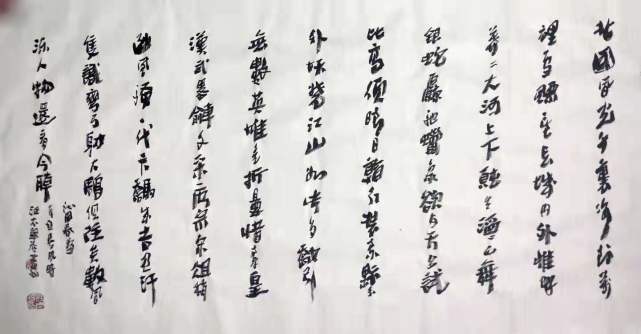 北國風光千裏冰封萬
裡雪飄望長城内外惟餘
莽々大河上下頓失滔々山舞
銀蛇原馳蠟象欲與天公試
比高須晴日看紅裝素裹分
外妖嬈江山如此多嬌引
無數英雄竞折腰惜秦皇
漢武略輸文采唐宗宋祖稍
遜風騷一代天驕成吉思汗
隻識彎弓射大鵰俱往矣數風
流人物還看今朝
沁園春雪